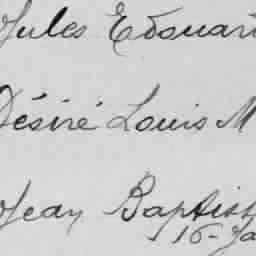 Jules Edouard
Désiré Louis M
Jean Baptist
16 - Ja